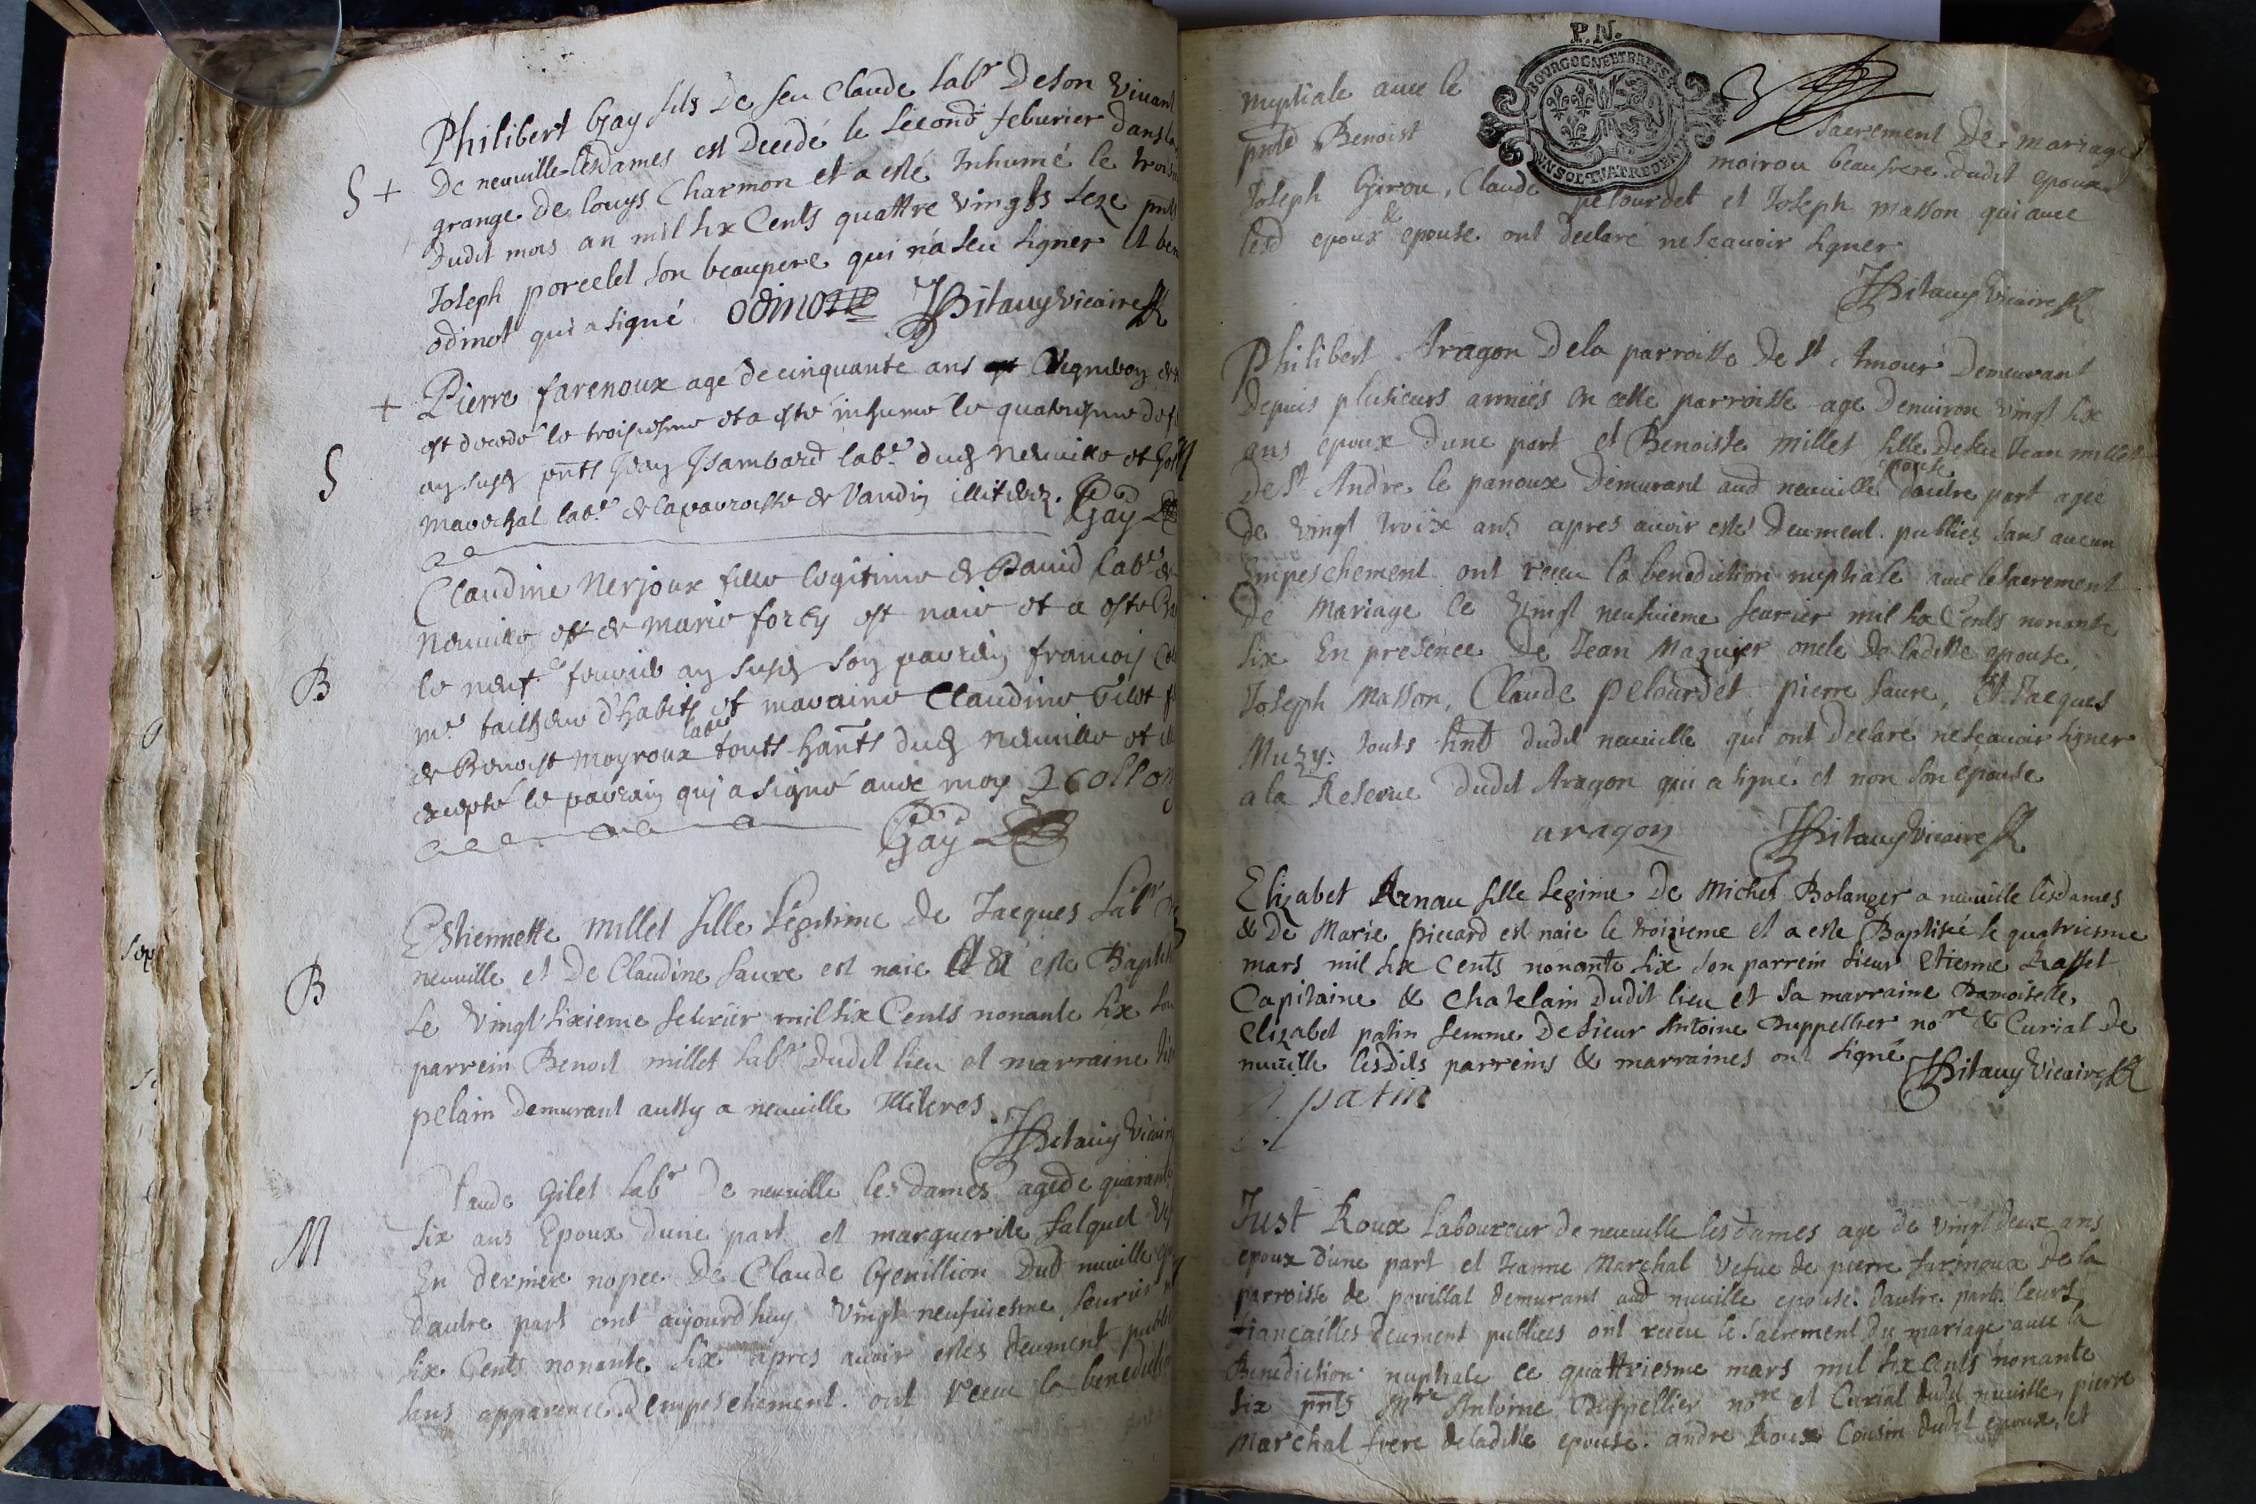 Philibert Gay fils De feu Claude Labr De son Vivant
De neuuille lesdames est Decedé le second feburier dans la
S +
grange de louys Charmon et a esté Inhumé le trois
dudit mois an mil six Cents quattre vingts seze pnts
Joseph porcelet son beaupere qui n'a seu signer et ben
odinot qui a signé odinot JBitauy Vicaire
+
Pierre farenoux age de cinquante ans
est decedé le troisiesme et a esté inhumé le quatriesme de
S
an susd pnts Jsambard labr dud neuuille et
mareschal labr de la parroisse de Vandin illiteres. Gay
Claudine Nerjoux fille legitime de Dauid labr de
Neuuille et de marie forey est naie et a esté
B
le neufe feurier an susd son parrain francois
me tailheur d'habits et maraine Claudine Gilet
labr
de Benoist Moyroux touts hants dud neuuille et
excepté le parrain qui a signé auec moy
Gay
Estiennette millet fille Légitime de Jacques Labr
B
neuuille et De Claudine faure est naie et a esté Baptis
Le Vingt sixieme feburier mil six Cents nonante six son
parrein Benoit millet Labr Dudit lieu et marraine
pelain demurant aussy a neuuille Illiteres.
JBitauy Vicaire
laude Gilet Labr De neuuille les dames agé de quarante
M
six ans Epoux dune part et marguerite falquet
En derniere nopce De Claude Genillion Dud neuuille
dautre part ont aujourd'huy Vingt neufuiesme feurier
six Cents nonante six apres auoir estés deument publié
sans apparence dempeschement. ont receu la benedicti
P.N.
BOURGOGNE ET BRESSE
VN SOL QVATRE DEN
nuptiale auec le sacrement De mariage
pntd Benoist moirou beaufrere dudit epoux
Joseph Girou, Claude pelourdet et Joseph masson qui auec
lesd epoux & epouse ont declaré ne scauoir signer
JBitauy Vicaire
Philibert Aragon De la parroisse De St Amour Demeurant
Depuis plusieurs années en cette parroisse agé denuiron vingt six
ans epoux dune part et Benoiste millet fille De feu Jean millet
De St André le panoux Demurant aud neuuille epouse dautre part agée
De vingt troix ans apres auoir estés Deument publiés sans aucun
Empeschement ont receu la benediction nuptiale auec le sacrement
De Mariage le vingt neufuieme feurier mil six Cents nonante
six En presence De Jean Maguier oncle De ladite epouse,
Joseph Masson, Claude Pelourdet, pierre faure, et Jacques
Muzy. touts hnts dudit neuuille qui ont Declaré ne scauoir signer
a la Reserue dudit Aragon qui a signé et non son epouse
aragon JBitauy Vicaire
Elizabet Arnau fille Legime De Michel Bolanger a neuuille lesdames
& De Marie piccard est naie le troizieme et a este Baptisée le quatriesme
mars mil six Cents nonante six son parrein sieur Etienne Rasset
Capitaine & Chatelain dudit lieu et sa marraine Damoiselle
Elizabet patin femme De sieur Antoine Duppellier nore & Curial de
neuuille lesdits parreins & marraines ont signé JBitauy Vicaire
patin
Just Roux Laboureur de neuuille les dames age de vingt deux ans
epoux d'une part et Jeanne Marchal Vefue de pierre farinoux de la
parroisse de pouillat demurans aud neuuille epouse dautre part. leurs
fiançailles deument publiees ont receu le Sacrement du mariage auec la
Benediction nuptiale ce quattriesme mars mil six cents nonante
six pnts Mre Antoine Duppellier nore et Curial dudit neuuille, pierre
Marchal frere de ladille epouse. andre Roux Cousin dudit epoux, et